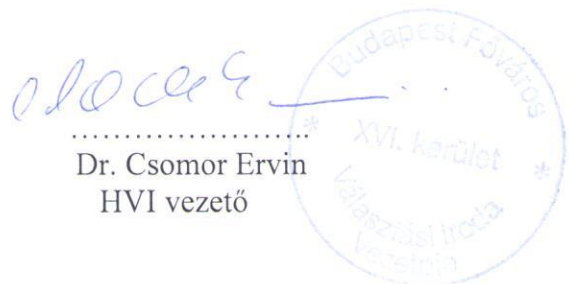 ........................
Dr. Csomor Ervin
HVI vezető
Budapest Főváros
* XVI. kerület *
Választási Iroda
Vezetője